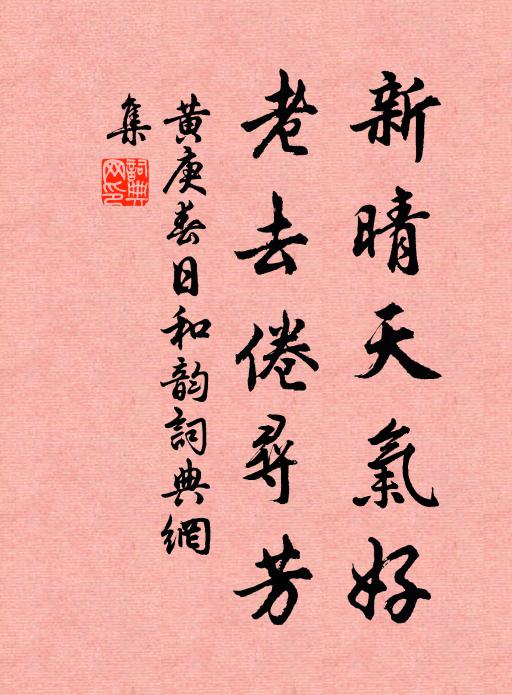 新晴天氣好
老去倦尋芳
黄庚春日和韵詞典網
集
詞典
网印